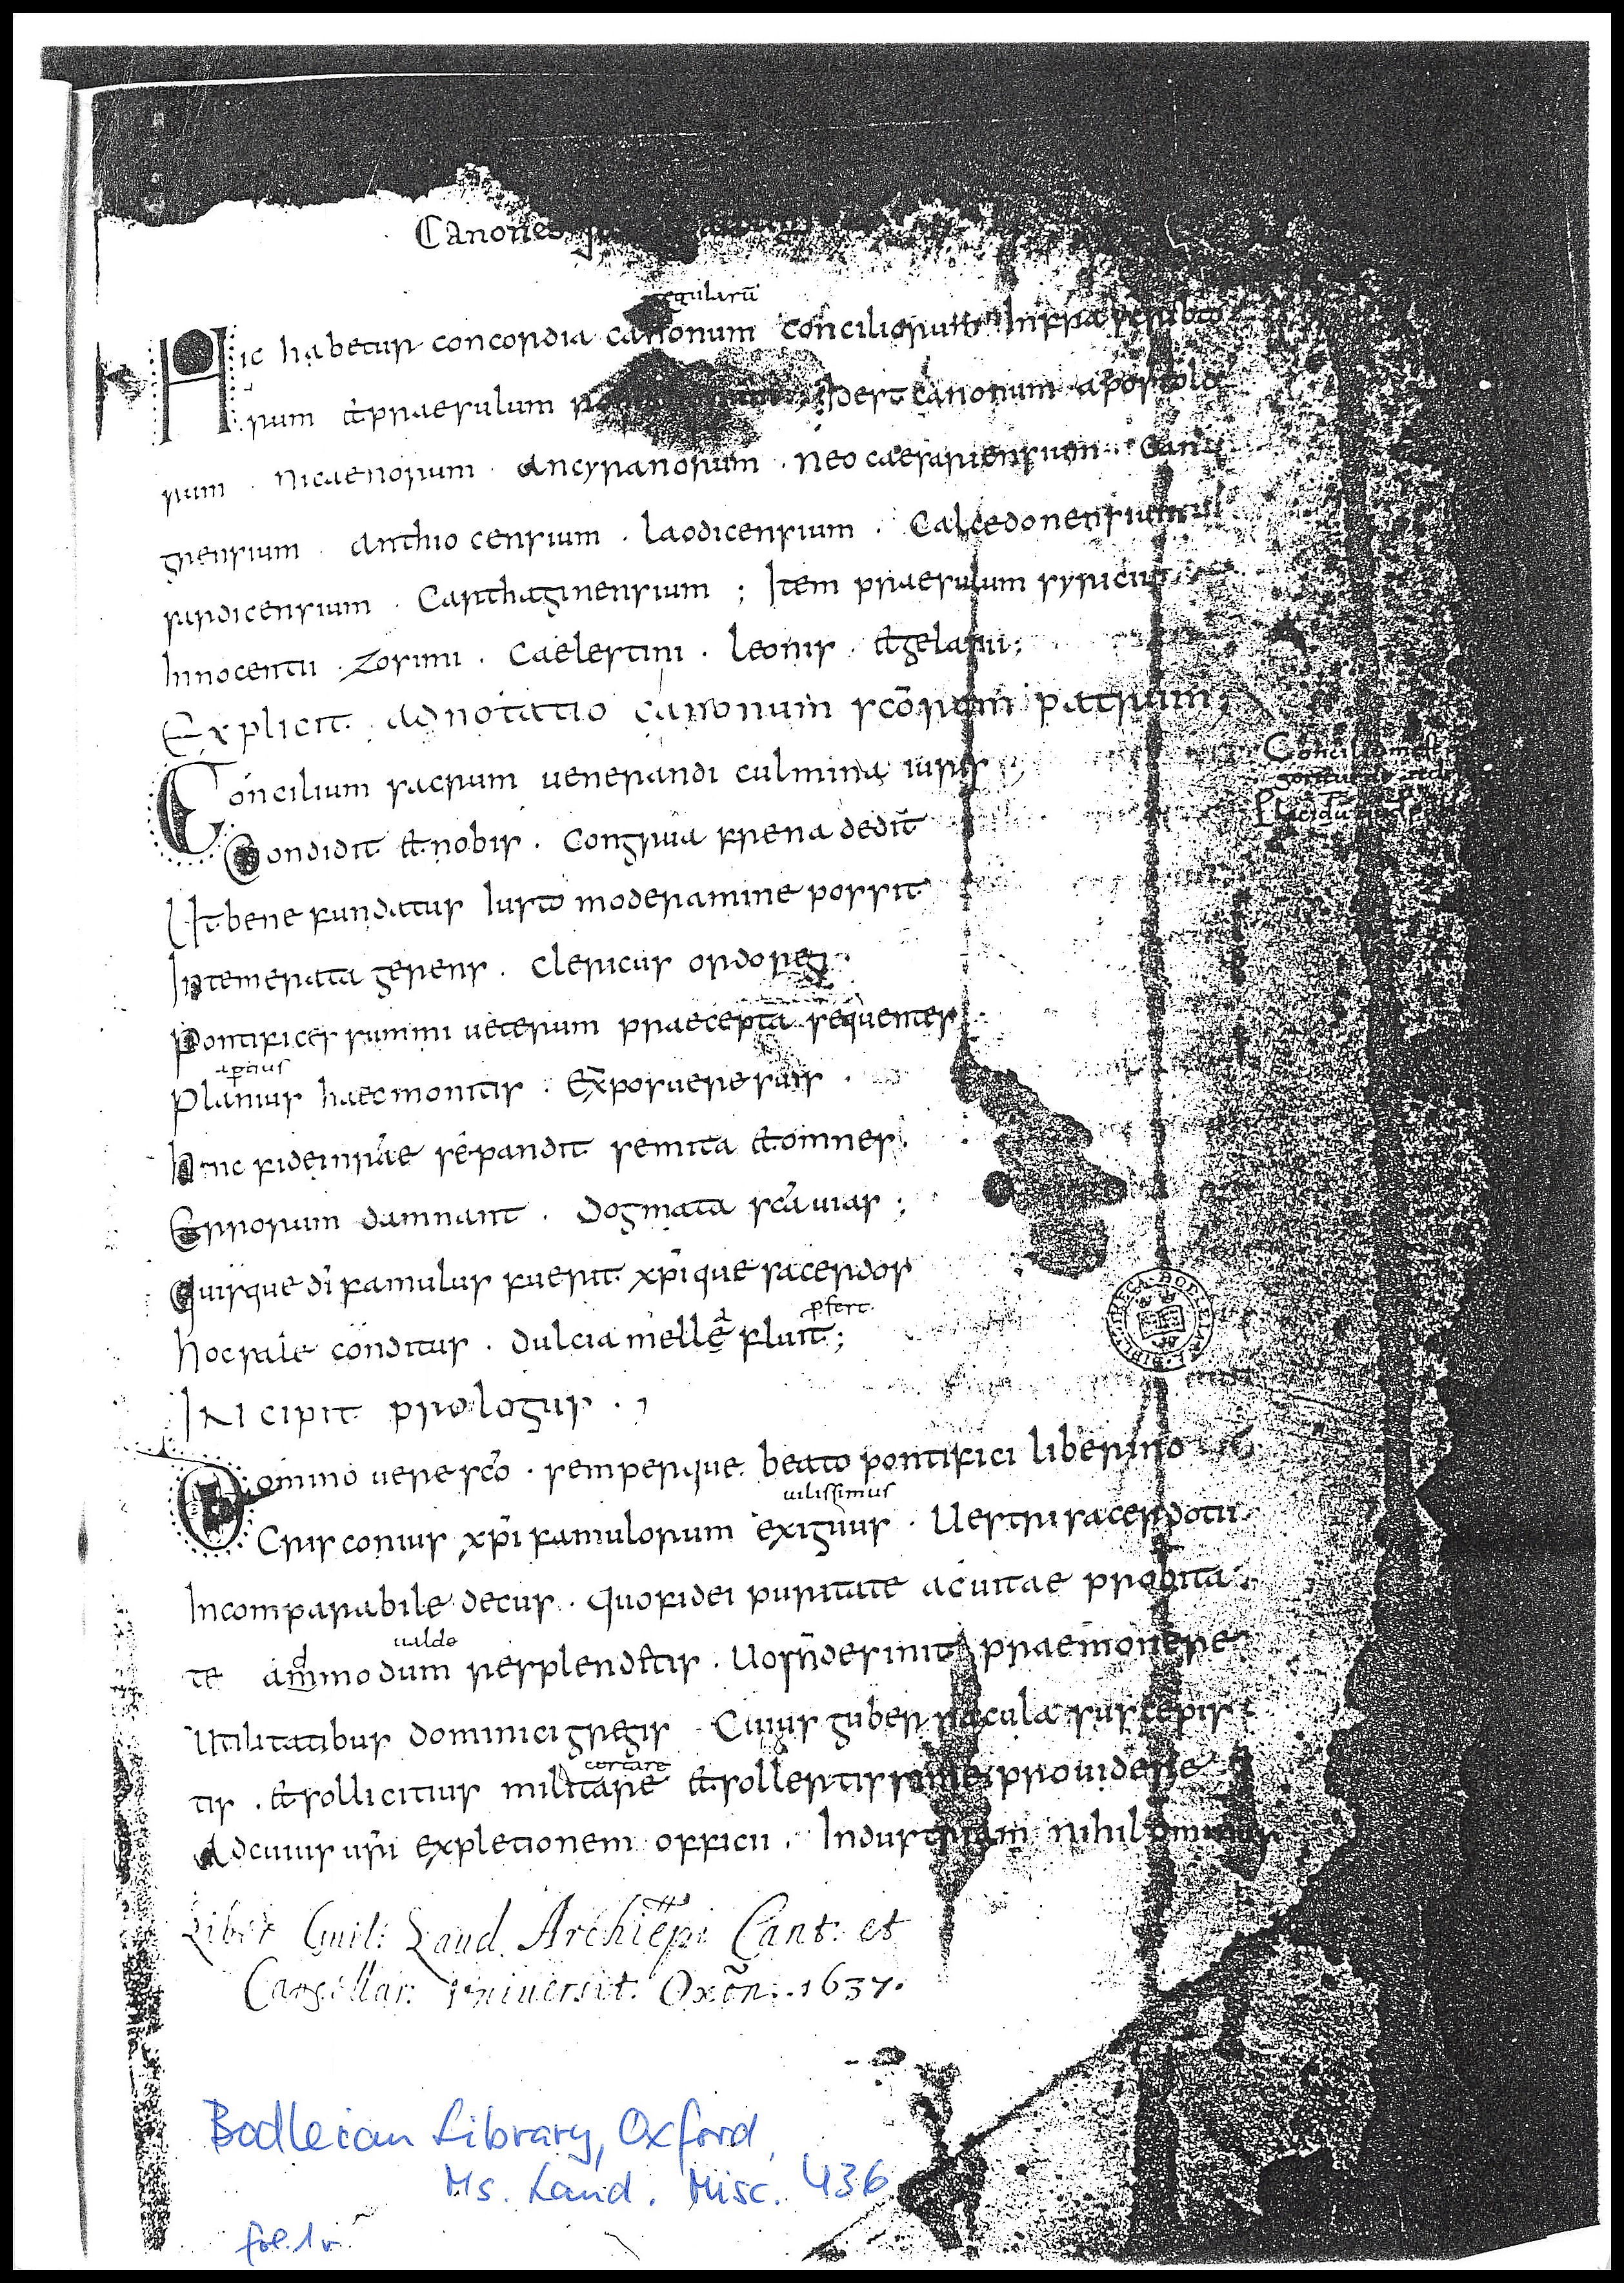 Canones
egularū
Hic habetur concordia canonum conciliorum Infra scripto
rum & praesulum idest canonum apostolo
rum . nicaenorum . ancyranorum . neocaesariensium . Gan
grensium . anthiocensium . laodicensium . Calcedonensium
sardicensium . Carthaginensium ; Item praesulum syricii
Innocentii . zosimi . Caelestini . leonis . & gelasii ;
Explicit adnotatio canonum scōrum patrum ;
Concilium sacrum uenerandi culmina iuris
Condidit & nobis . Congrua frena dedit
Ut bene fundatus Iusto moderamine possit
Intemerata gerens . Clericus ordo regi
Pontifices summi ueterum praecepta sequentes
aptius
Planius haec monitis . Exposuere suis .
Hinc fidei nr̄ae se pandit semita & omnes
Errorum damnant . Dogmata scā uias ;
Quisque dī famulus fuerit xp̄ique sacerdos
pfert
hoc sale conditus . Dulcia melle fluit ;
Incipit prologus .
Domino uere scō . semperque beato pontifici liberino
uilissimus
Crisconius xp̄i famulorum exiguus . Uestri sacerdotii
Incomparabile decus . quo fidei puritate ac uitae probita
ualde
te ammodum resplendetis . Uos n̄ desinit praemonere
Utilitatibus dominici gregis Cuius gubernacula suscepis
certare
tis . & sollicitius militare & sollertissime prouidere
Ad cuius ur̄i expletionem officii . Industriam nihilominus
Liber Guil: Laud. Archiep̄i Cant: et
Cancellar: Vniuersit: Oxōn: 1637.
Bodleian Library, Oxford,
Ms. Laud. Misc. 436
fol. 1r